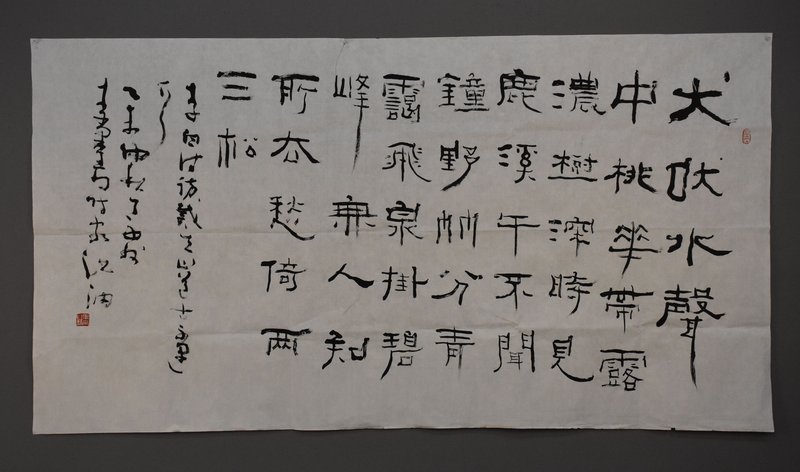 犬吠水聲
中桃華帶露
濃樹深時見
鹿溪午不聞
鐘野竹分青
靄飛泉掛碧
峰無人知
所去愁倚兩
三松
李白詩訪戴天山道士不遇
乙未仲秋